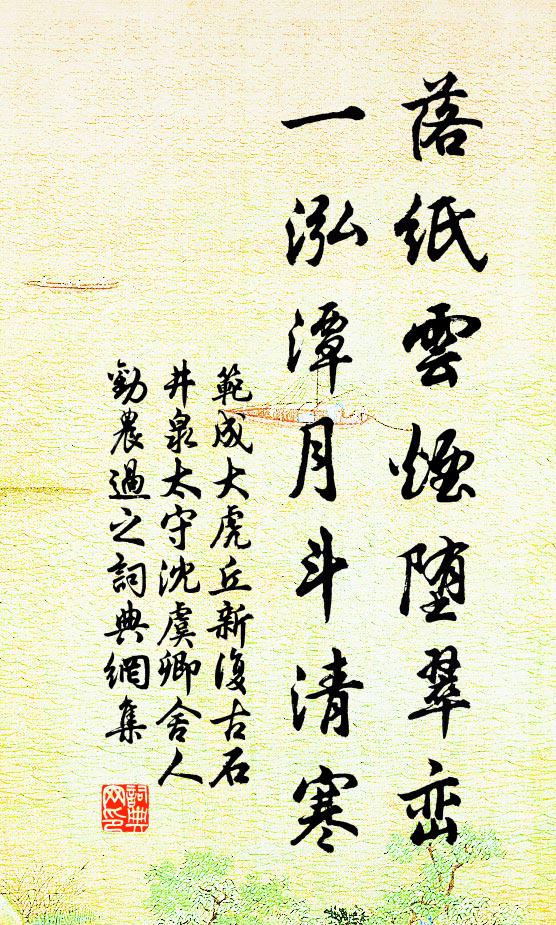 落紙雲煙堕翠巒
一泓潭月斗清寒
範成大虎丘新復古石
井泉太守沈虞卿舍人
勸農過之詞典網集
詞典
网印